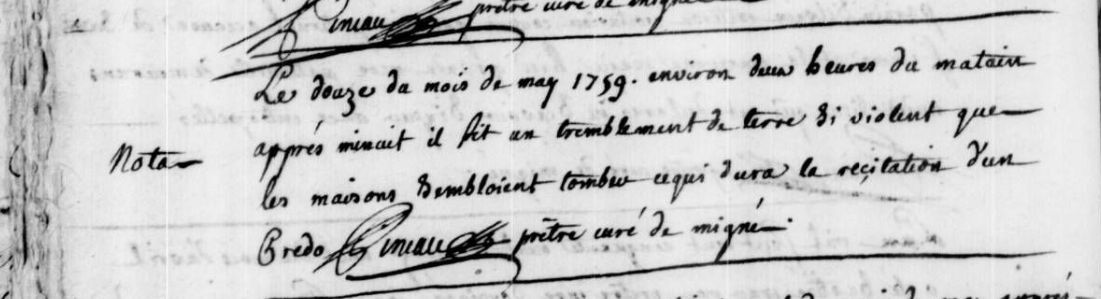 prêtre curé de migné
Le douze du mois de may 1759. environ deux heures du matain
Nota
apprés minuit il fit un tremblement de terre Si violent que
les maisons Sembloient tomber cequi dura la reçitation d'un
Credo Pineau prêtre curé de migné.